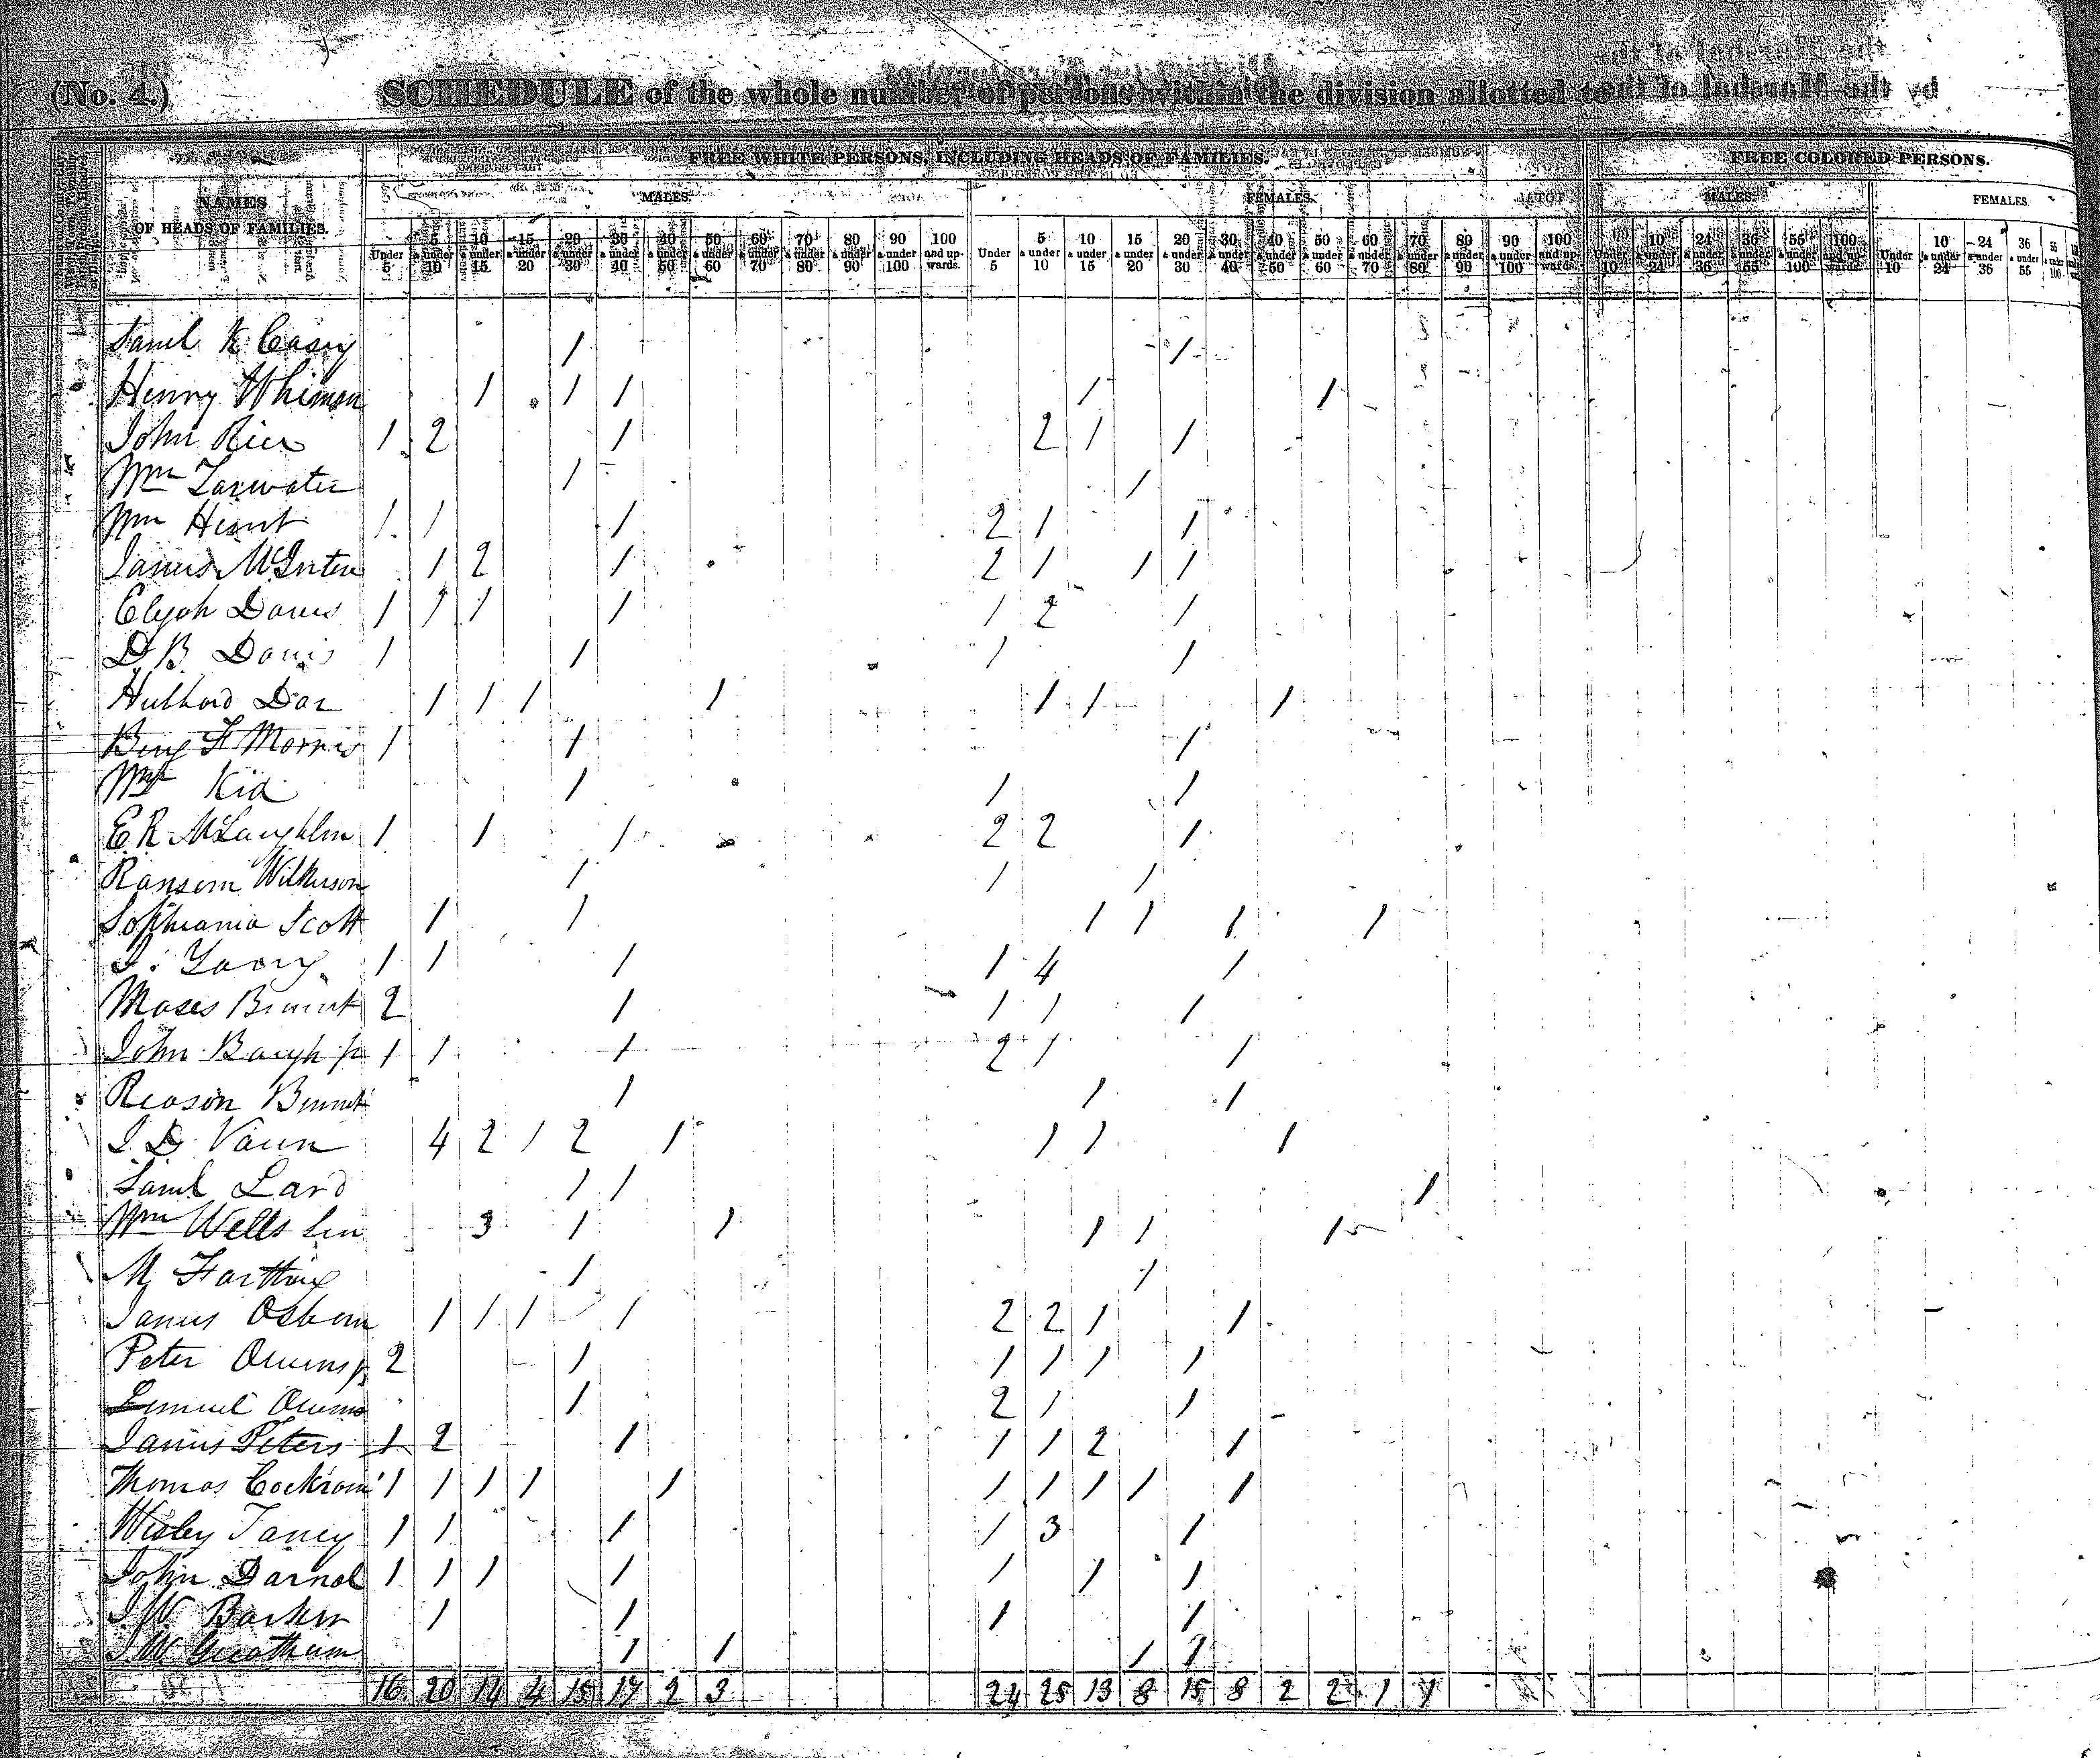 (No. 4.) SCHEDULE of the whole number of persons within the division allotted to by the Marshal of the
FREE WHITE PERSONS, INCLUDING HEADS OF FAMILIES. FREE COLORED PERSONS.
NAMES OF HEADS OF FAMILIES. MALES. FEMALES. MALES. FEMALES.
Under 5 5 & under 10 10 & under 15 15 & under 20 20 & under 30 30 & under 40 40 & under 50 50 & under 60 60 & under 70 70 & under 80 80 & under 90 90 & under 100 100 and upwards. Under 5 5 & under 10 10 & under 15 15 & under 20 20 & under 30 30 & under 40 40 & under 50 50 & under 60 60 & under 70 70 & under 80 80 & under 90 90 & under 100 100 and upwards. Under 10 10 & under 24 24 & under 36 36 & under 55 55 & under 100 100 and upwards Under 10 10 & under 24 24 & under 36 36 & under 55 55 & under 100
Saml K Casey 1 1
Henry Whiman 1 1 1 1 1
John Rice 1 2 1 2 1 1
Wm Tarwater 1 1
Wm Hunt 1 1 1 2 1 1
James McInten 1 2 1 2 1 1 1
Elijah Davis 1 1 1 1 1 2 1
D B Davis 1 1 1 1
Hubbard Dar 1 1 1 1 1 1 1
Benj F Morris 1 1 1
Kid 1 1 1
E R McLaughlin 1 1 1 2 2 1
Ransom Wilkerson 1 1 1
Sophrania Scott 1 1 1 1 1 1
1 1 1 1 4 1
Moses Bennet 2 1 1 1 1
John Baugh jr 1 1 1 2 1 1
Reason Bennet 1 1 1
J. D. Vaun 4 2 1 2 1 1 1 1
Saml Lard 1 1 1
Wm Wells Sen 3 1 1 1 1 1
M Farthing 1 1
James Osborn 1 1 1 1 2 2 1 1
Peter Owens jr 2 1 1 1 1 1
Lemuel Owens 1 2 1 1
James Peters 1 2 1 1 1 2 1
Thomas Cockram 1 1 1 1 1 1 1 1 1 1
Wisley Taney 1 1 1 1 3 1
John Darnal 1 1 1 1 1 1 1
J W Barker 1 1 1 1
J W Greathum 1 1 1 1
16 20 14 4 15 17 2 3 24 25 13 8 15 8 2 2 1 1